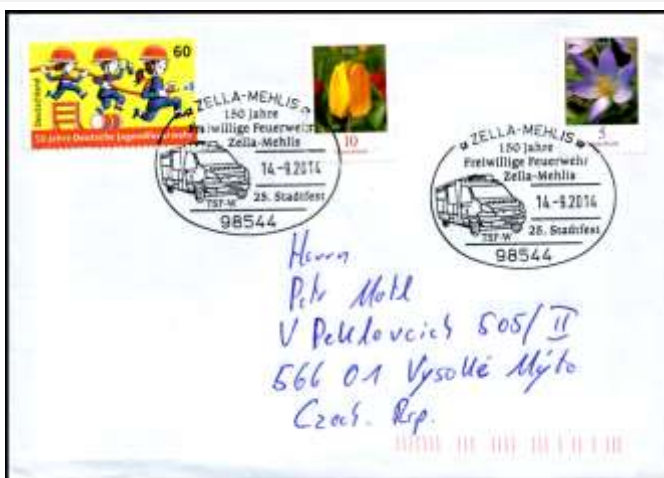 Deutschland
60
50 Jahre Deutsche Jugendfeuerwehr
10
5
ZELLA-MEHLIS
150 Jahre
Freiwillige Feuerwehr
Zella-Mehlis
14.-9.2014
TSF-W
25. Stadtfest
98544
ZELLA-MEHLIS
150 Jahre
Freiwillige Feuerwehr
Zella-Mehlis
14.-9.2014
TSF-W
25. Stadtfest
98544
Herrn
Petr Motl
V Peklovcích 505/II
566 01 Vysoké Mýto
Czech. Rep.